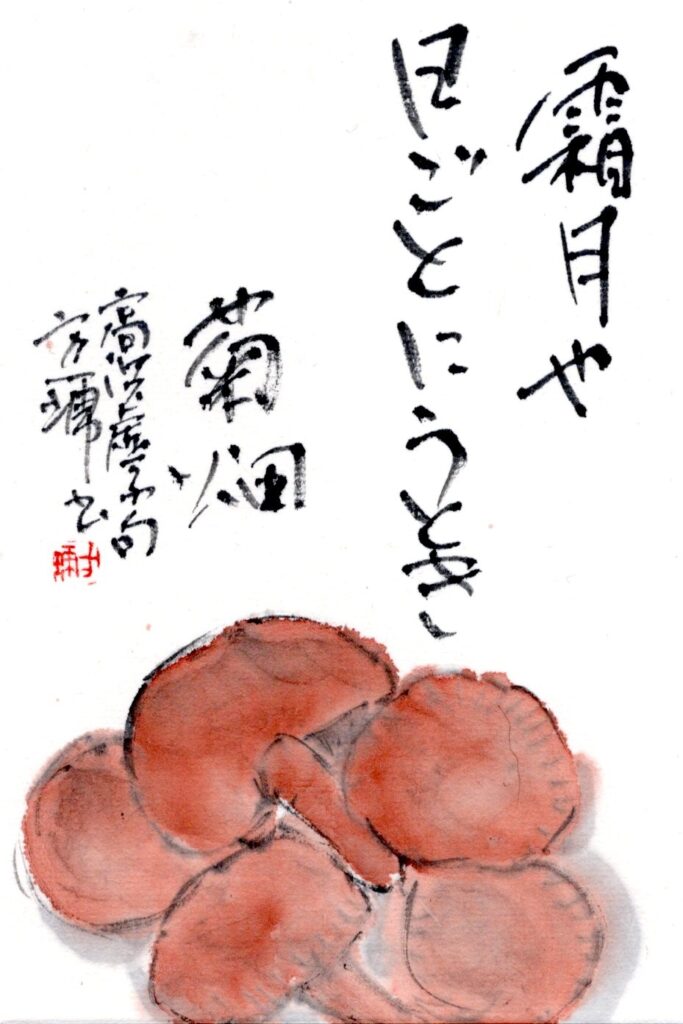 霜月や
日ごとにうとき
菊畑
高浜虚子句